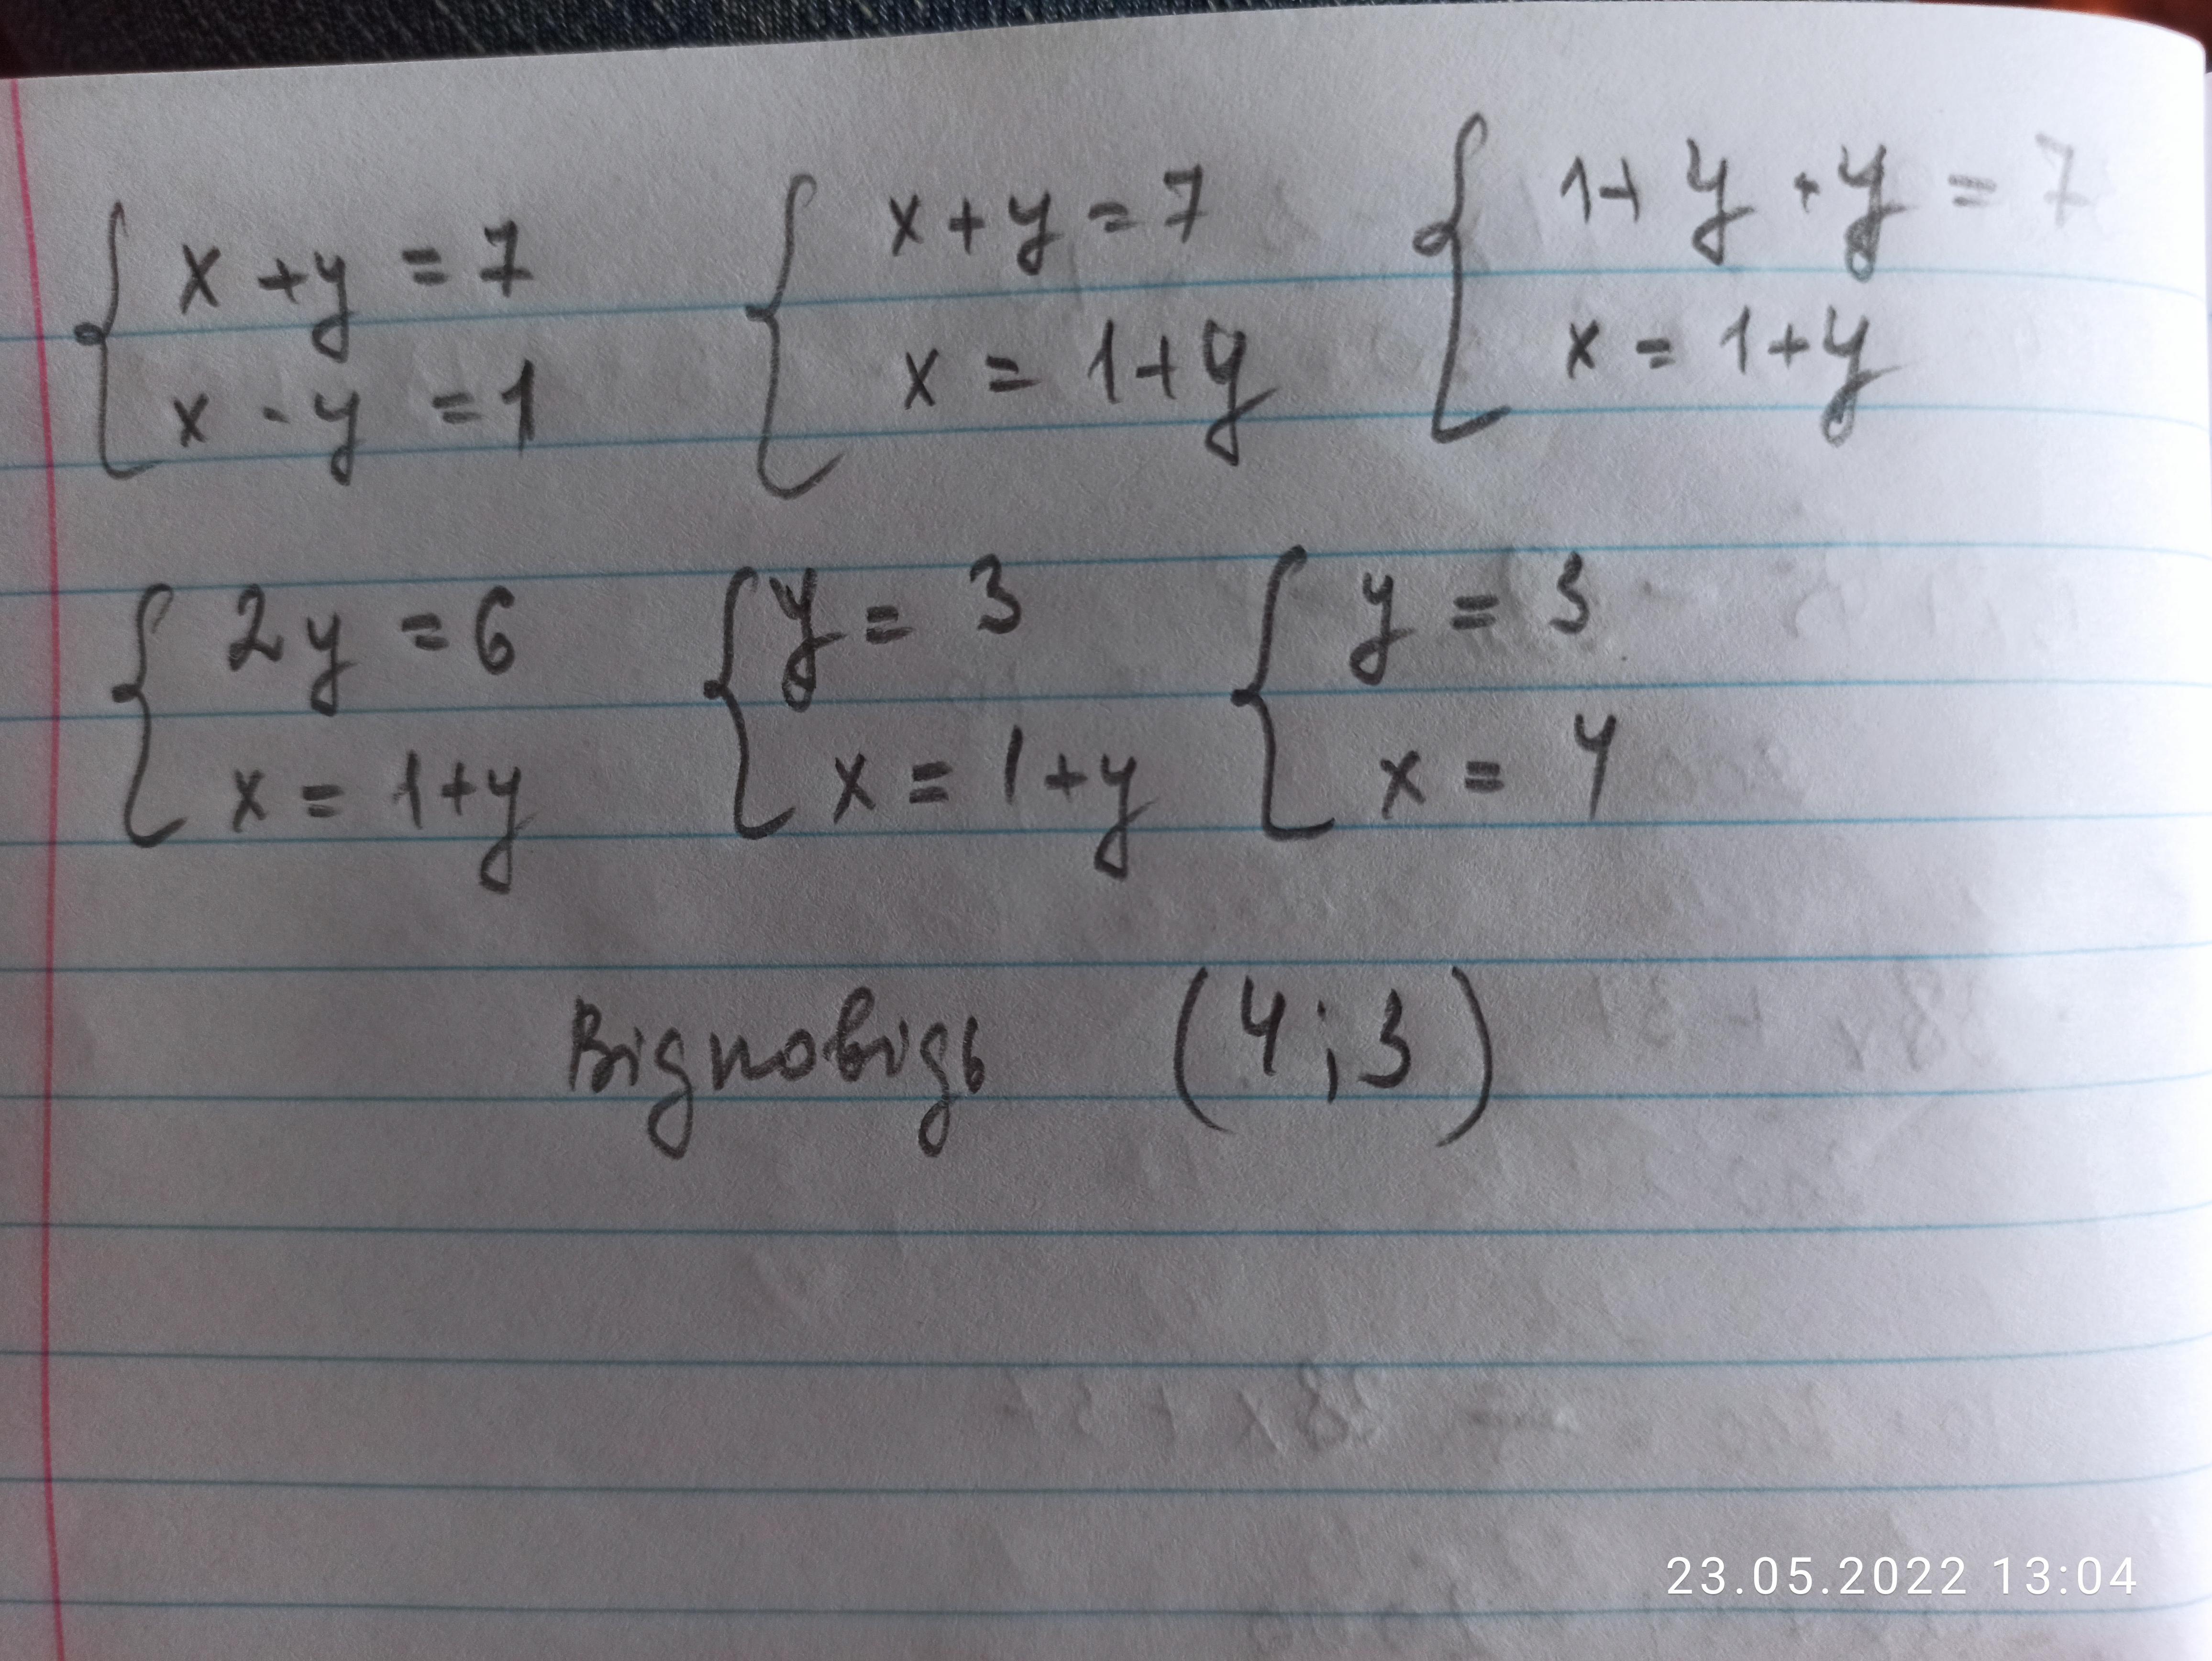 x + y = 7
x - y = 1
x + y = 7
x = 1 + y
1 + y + y = 7
x = 1 + y
2y = 6
x = 1 + y
y = 3
x = 1 + y
y = 3
x = 4
Відповідь (4; 3)
23.05.2022 13:04